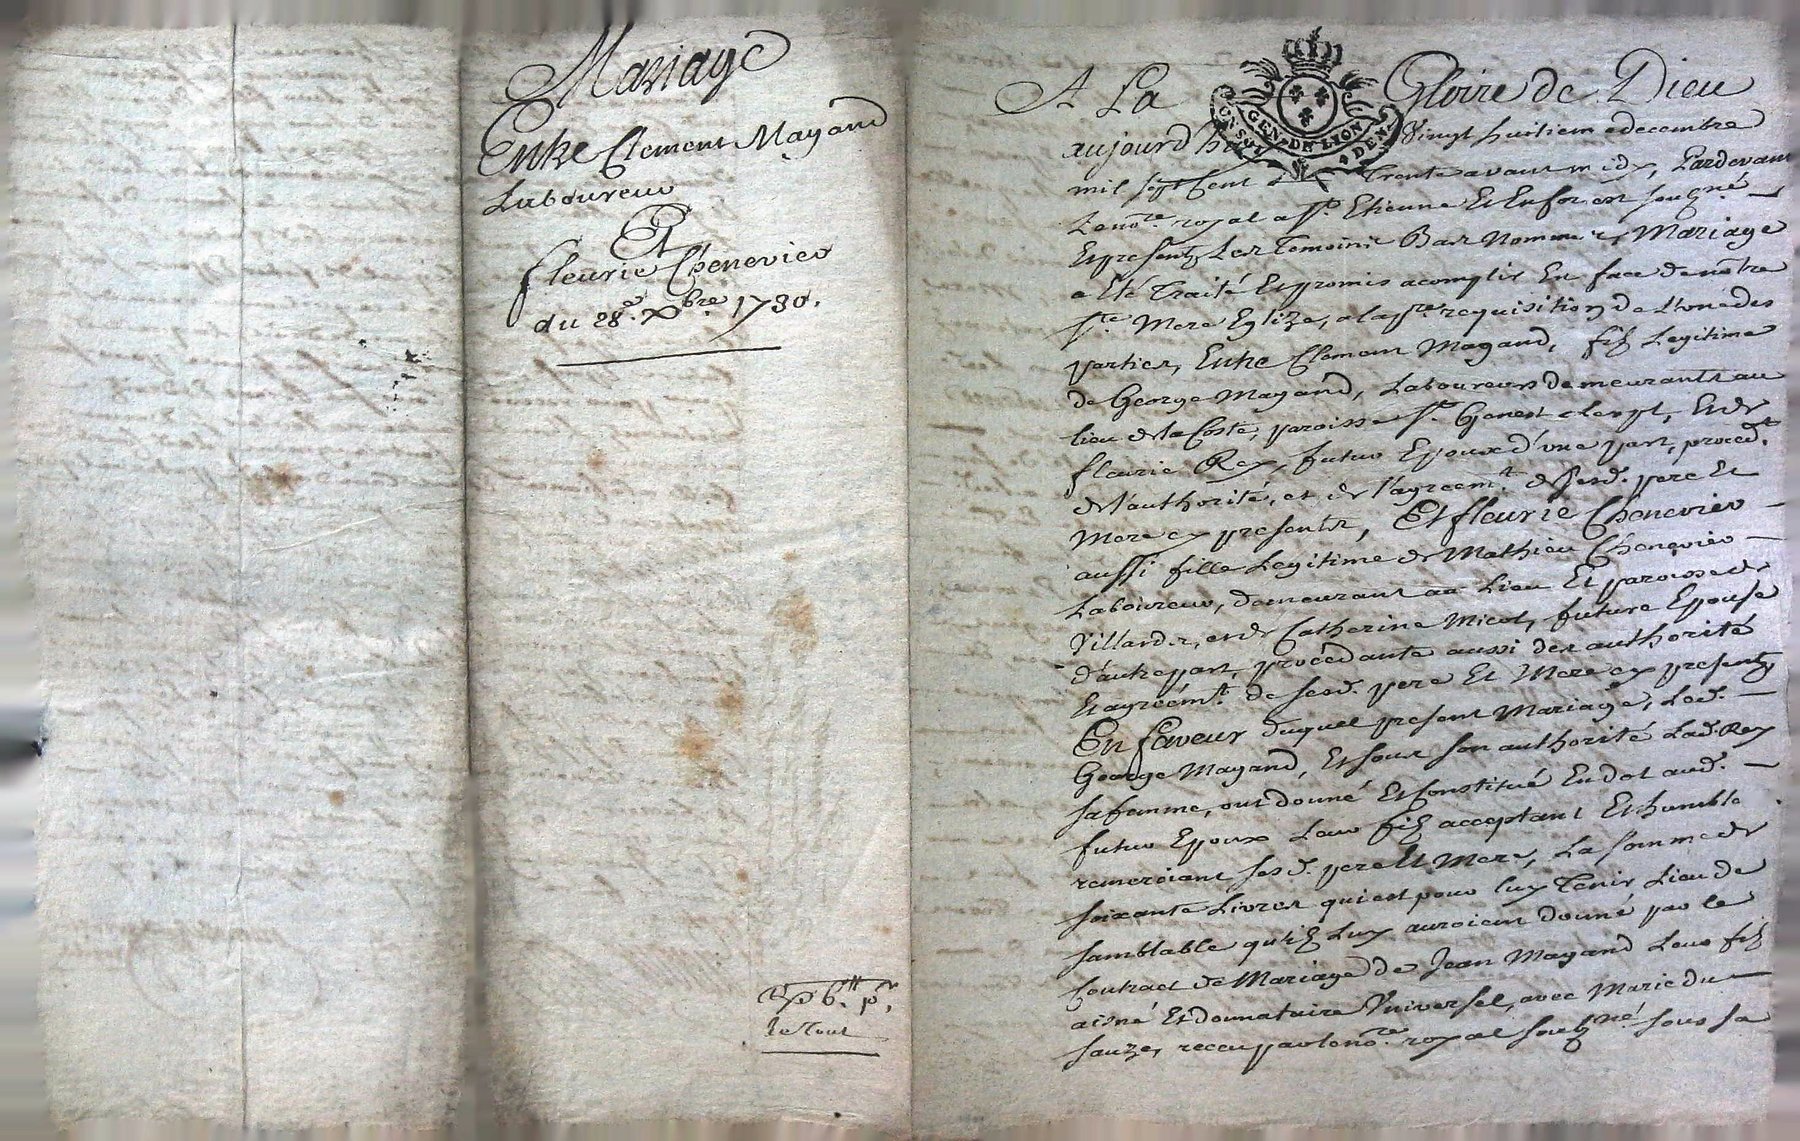 Mariage
Entre Clement Magand
Laboureur
Et
fleurie Chenevier
du 28.e Xbre. 1730.
Exp 6.tt p.r
le tout
A La Gloire de Dieu
GEN. DE LYON
aujourdhuy Vingt huitieme decembre
mil sept Cent Trente avant midy, Pardevant
Le no.re royal a S.t Etienne Et Enforest soubz.né
Et presents Les Temoins Bas Nommés, Mariage
a Eté Traité Et promis acomplir En face de nôtre
S.te Mere Eglize, a la p.re requisition de L'une des
parties, Entre Clement Magand, filz Legitime
de George Magand, Laboureurs demeurants au
lieu de la Coste, paroisse S.t Genest Lerpt, Et de
fleurie Rey, futur Epoux d'une part, proced.t
de l'authorité, et de l'agreem.t de sesd. pere Et
Mere cy presents, Et fleurie Chenevier
aussi fille Legitime de Mathieu Chenevier
Laboureur, demeurant au Lieu Et paroisse de
Villards, et de Catherine Micol, future Epouse
d'autre part, procédante aussi des authorité
Et agreém.t de sesd. pere Et Mere cy presents
En faveur duquel present Mariage, Led.
George Magand, Et sous son authorité Lad. Rey
sa femme, ont donné Et Constitué En dot aud.
futur Epoux Leur filz acceptant Et humble
remerciant sesd. pere Et Mere, La somme de
soixante Livres qui est pour luy Tenir Lieu de
samblable qu'ilz Luy auroient donné par le
Contract de Mariage de Jean Magand Leur filz
aisné Et donnataire Universel, avec Marie du
sauze, receu par le no.re royal soubz.né sous sa